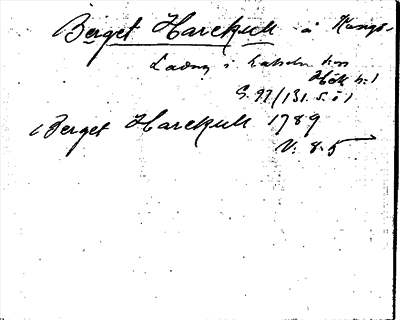 Berget Harekull å Kongs-
Ladug i
Hök h. 1
S. 97/131. 5. 51
Berget Harekull 1789
V: 8. 5